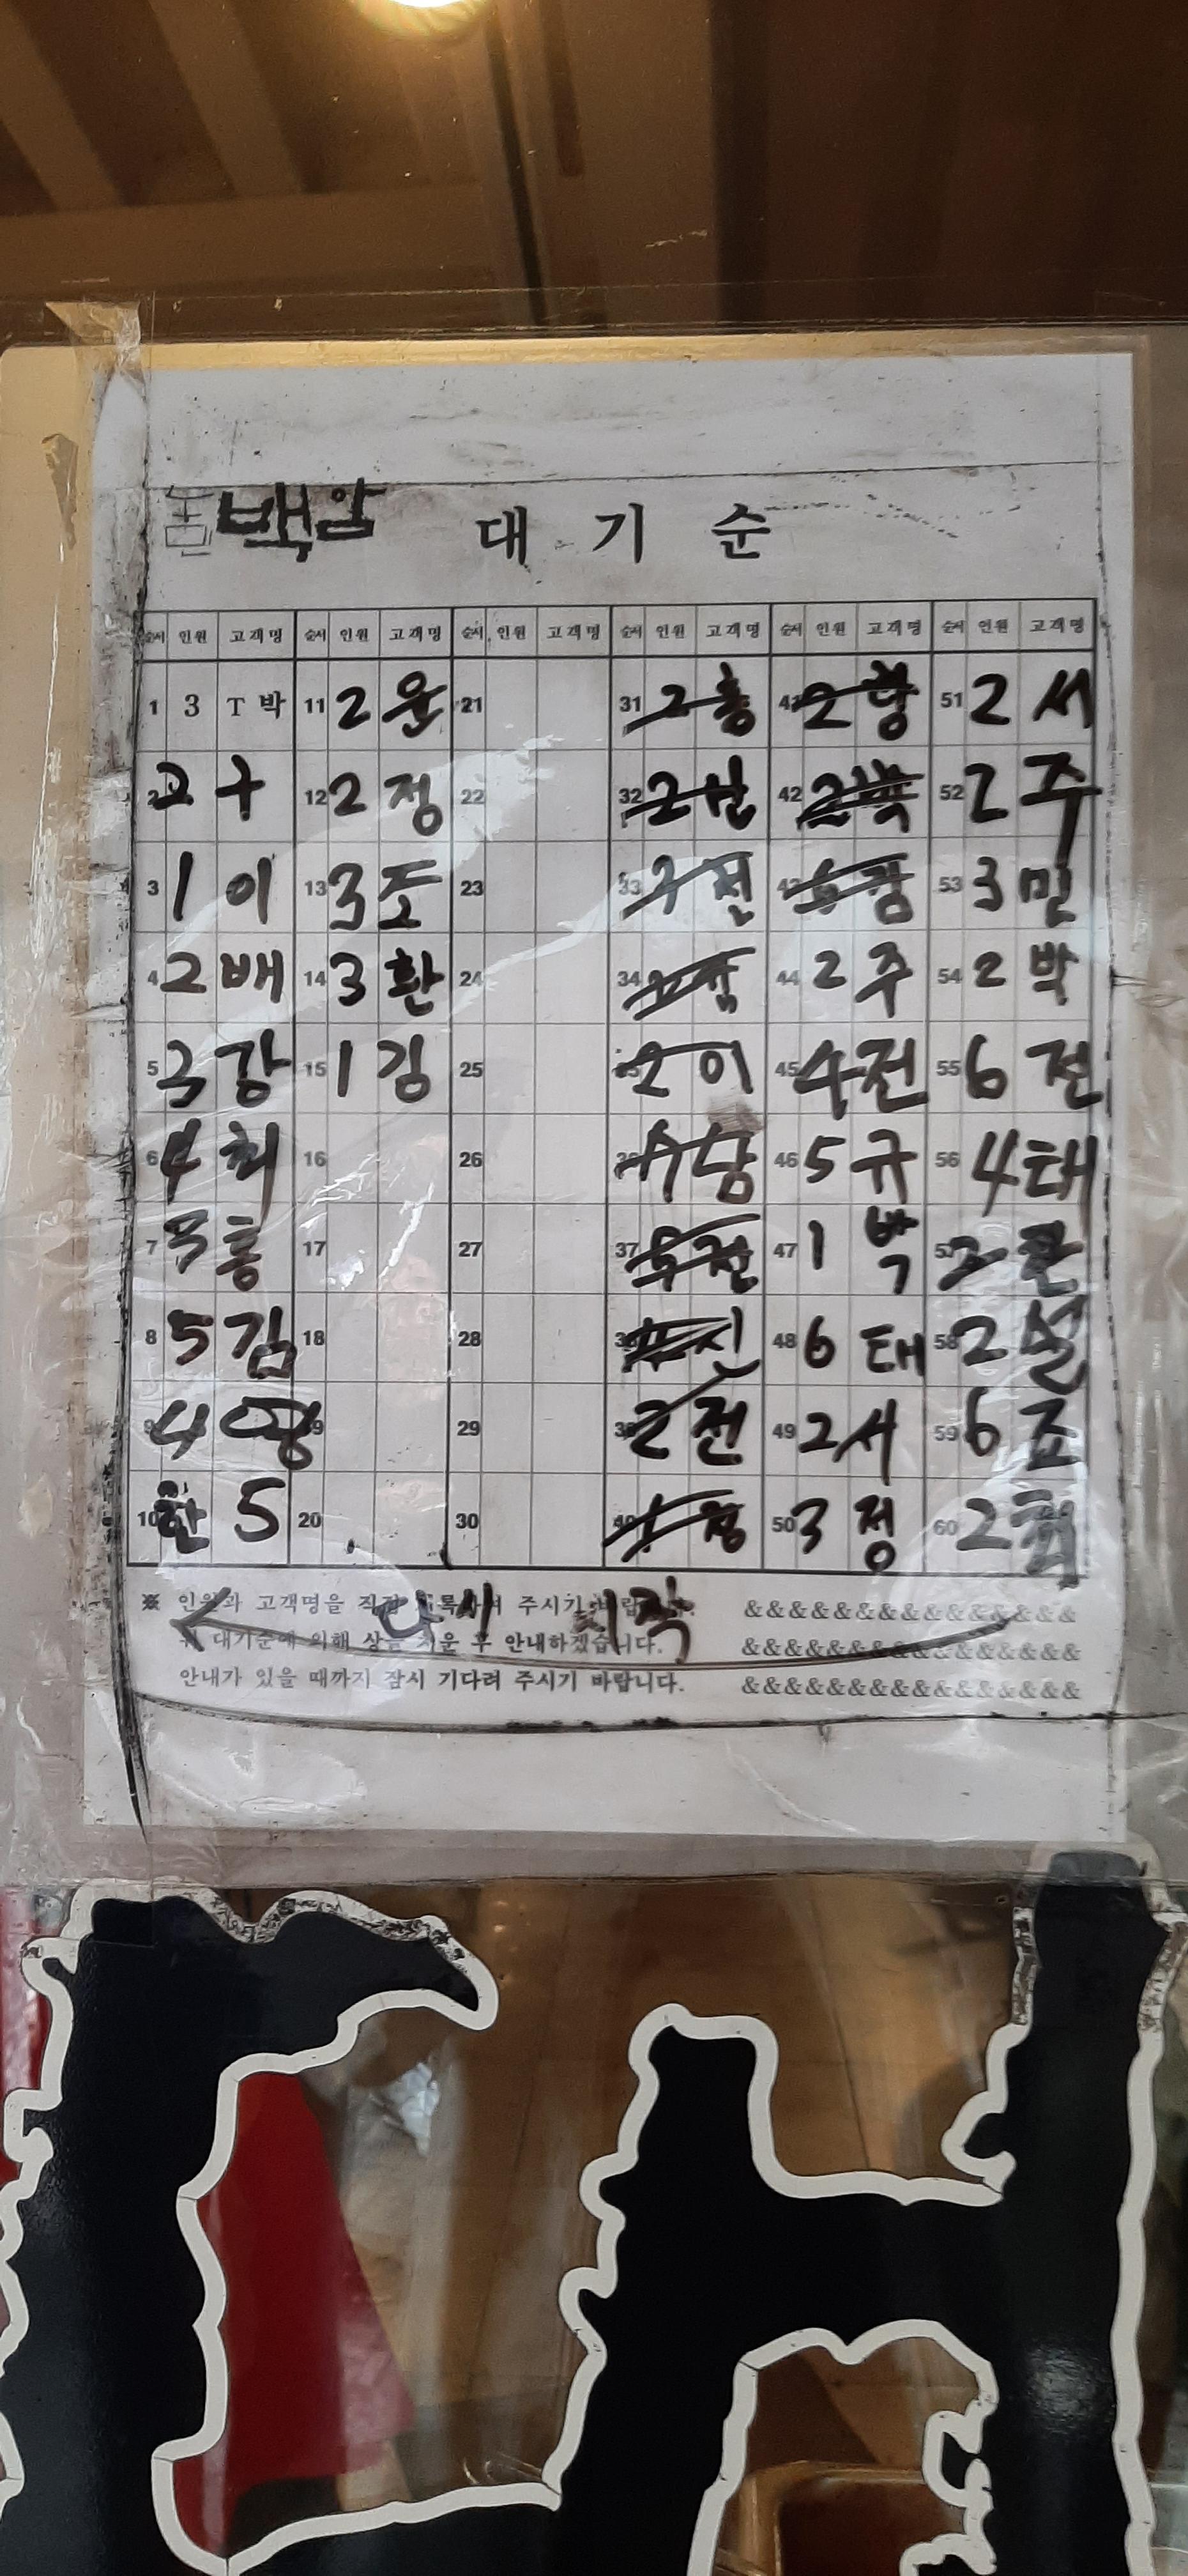 백암 대 기 순
순서 인원 고객명 순서 인원 고객명 순서 인원 고객명 순서 인원 고객명 순서 인원 고객명 순서 인원 고객명
1 3 T 박 11 2 윤 21 31 2 홍 41 2 51 2 서
2 2 구 12 2 정 22 32 2 42 2 52 2 주
3 1 이 13 3 조 23 33 전 43 53 3 민
4 2 배 14 3 환 24 34 44 2 주 54 2 박
5 3 강 15 1 김 25 35 2 이 45 4 전 55 6 전
6 4 최 16 26 36 46 5 규 56 4 태
7 홍 17 27 37 전 47 1 박 57 2
8 5 김 18 28 38 신 48 6 태 58 2 설
9 4 영 19 29 39 2 전 49 2 서 59 6 조
10 한 5 20 30 40 정 50 3 정 60 2 최
※ 인원과 고객명을 직접 주시기 바랍니다. &&&&&&&&&&&&&&&
다시 시작
위 대기순에 의해 상을 치운 후 안내하겠습니다. &&&&&&&&&&&&&&&
안내가 있을 때까지 잠시 기다려 주시기 바랍니다. &&&&&&&&&&&&&&&